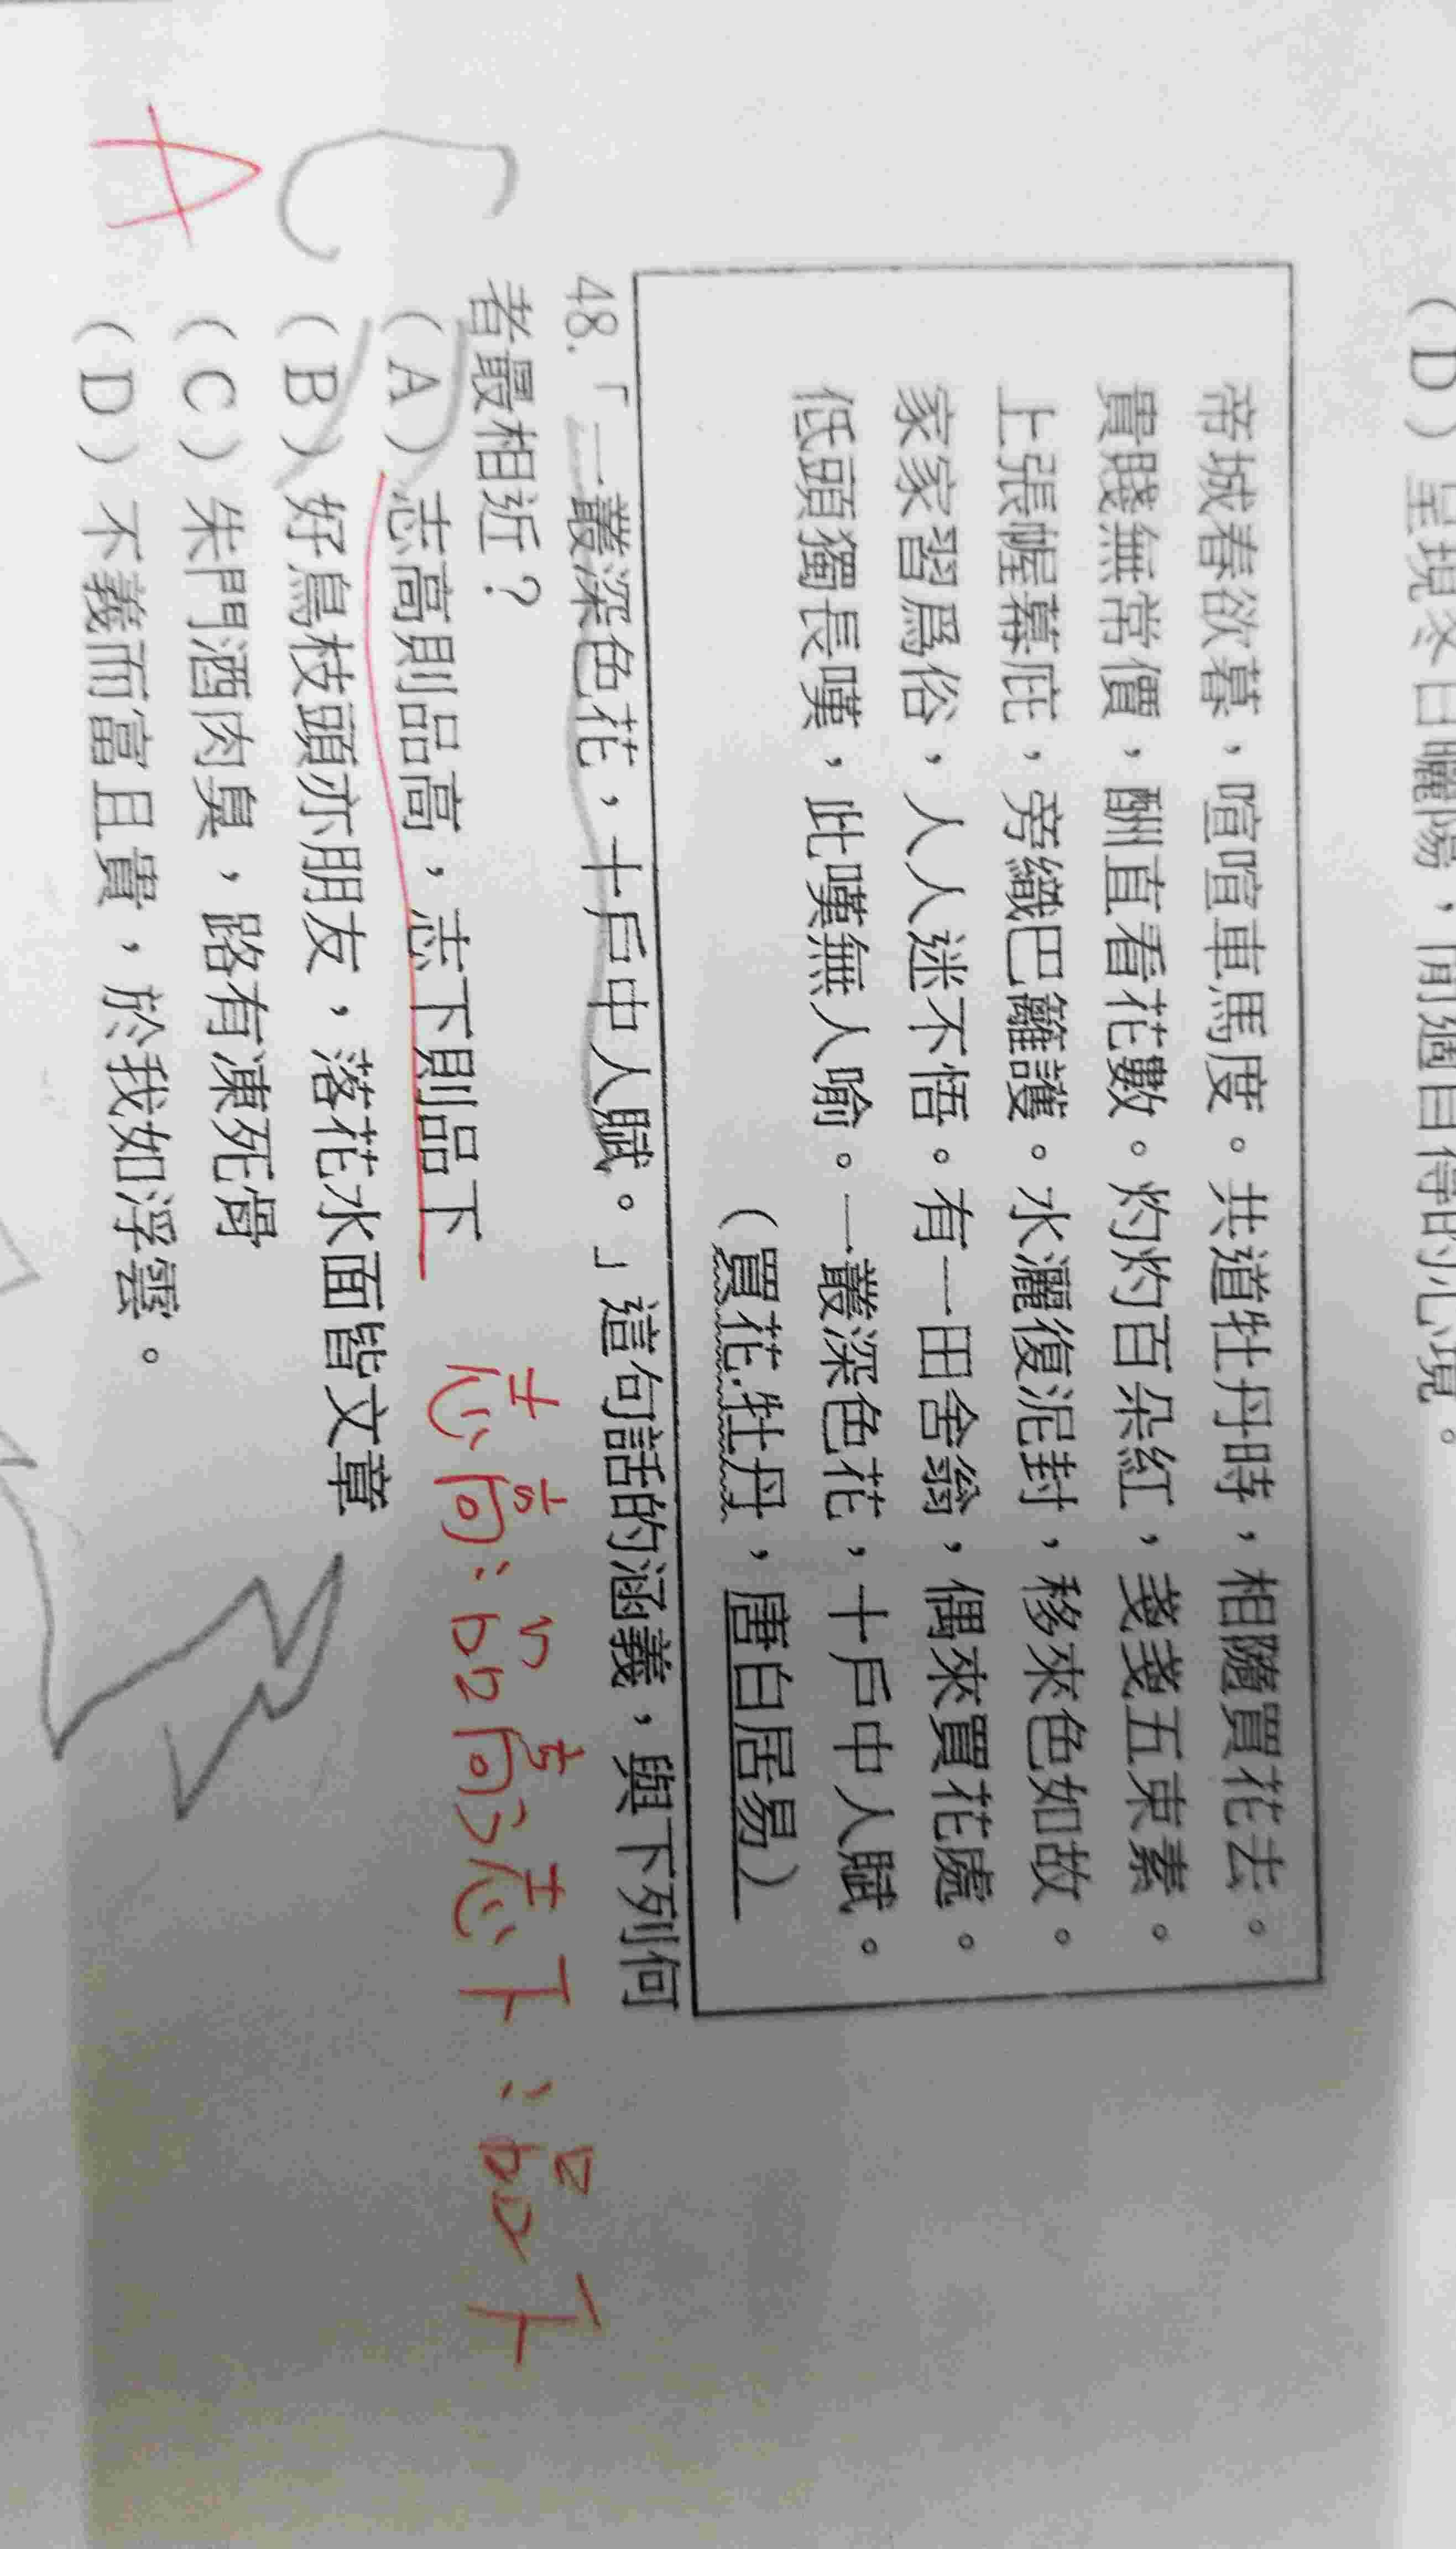 （D）呈現冬日曬陽，閒適自得的心境。
帝城春欲暮，喧喧車馬度。共道牡丹時，相隨買花去。
貴賤無常價，酬直看花數。灼灼百朵紅，戔戔五束素。
上張幄幕庇，旁織巴籬護。水灑復泥封，移來色如故。
家家習為俗，人人迷不悟。有一田舍翁，偶來買花處。
低頭獨長嘆，此嘆無人喻。一叢深色花，十戶中人賦。
（買花.牡丹，唐白居易）
48.「一叢深色花，十戶中人賦。」這句話的涵義，與下列何
者最相近？
（A）志高則品高，志下則品下
志高：品高，志下：品下
（B）好鳥枝頭亦朋友，落花水面皆文章
（C）朱門酒肉臭，路有凍死骨
（D）不義而富且貴，於我如浮雲。
C
A